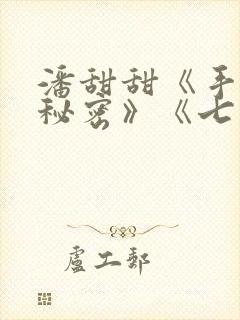 潘甜甜《手
秘密》《七
盧工郵